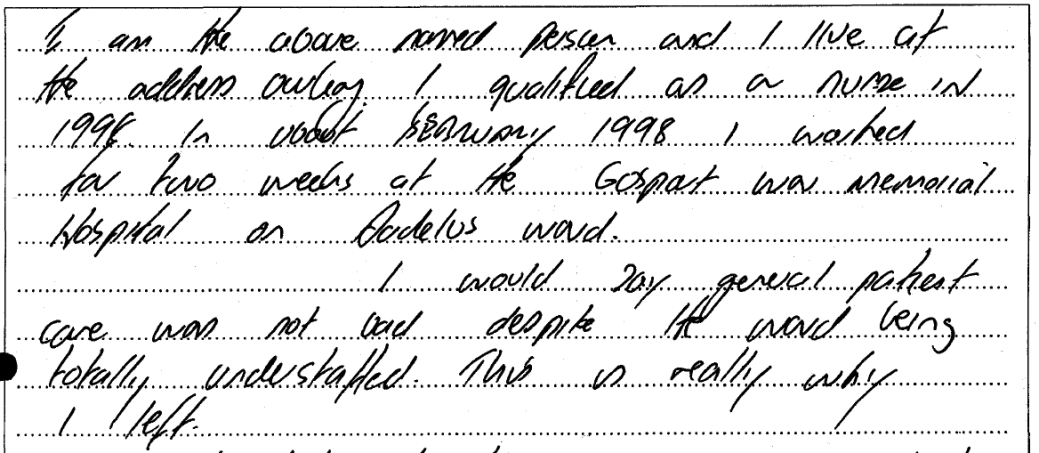 I am the above named person and I live at
the address overleaf. I qualified as a nurse in
1996. In about February 1998 I worked
for two weeks at the Gosport war memorial
Hospital on Dadelus ward.
I would say general patient
care was not bad despite the ward being
totally understaffed. This is really why
I left.